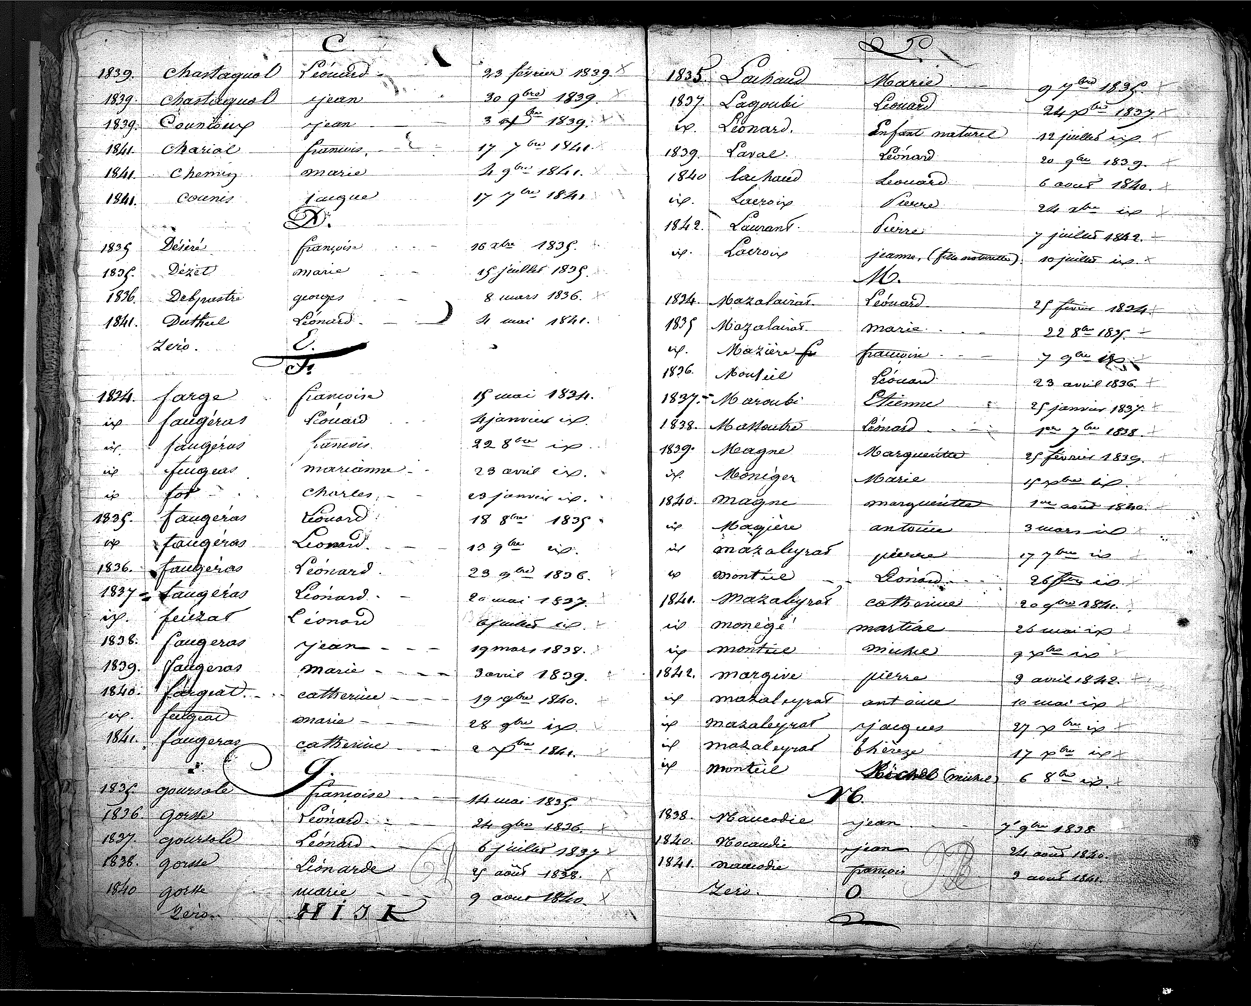 C.
1839. Chastagnol Léonard 23 février 1839.
1839. Chastagnol jean 30 9bre 1839.
1839. Countoux jean 3 xbre 1839.
1841. Charial francois. 17 7bre 1841.
1841. Chemin marie 4 9bre 1841.
1841. Counis jacque 17 7bre 1841
D.
1835 Désiré françoise 16 xbre 1835.
1835. Dézet marie 15 juillet 1835.
1836. Delpastre georges 8 mars 1836.
1841. Dutheil Léonard 4 mai 1841.
Zéro. E.
F.
1834. farge francoise 15 mai 1834.
ix faugéras Léonard 4 janvier ix.
ix faugéras francois 22 8bre ix.
ix faugeras marianne 23 avril ix.
ix for charles 23 janvier ix.
1835. faugéras Léonard 18 8bre 1835
ix faugéras Léonard. 13 9bre ix.
1836. faugéras Léonard. 23 9bre 1836.
1837 faugéras Léonard. 20 mai 1837.
ix. feuzat Léonard 6 juillet ix.
1838. faugeras jean 19 mars 1838.
1839. faugeras marie 3 avril 1839.
1840. fargeat catherine 19 9bre 1840.
ix. marie 28 9bre ix.
1841. faugeras catherine 2 xbre 1841.
G.
1835 goursole francoise 14 mai 1835
1836. gorse Léonard 24 9bre 1836.
1837. goursole Léonard 6 juillet 1837
1838. gorse Léonarde 25 août 1838.
1840 gorse marie 9 aout 1840.
Zéro H I J K
L
1835. Lachaud Marie 9 7bre 1835
1837. Lagoubi Léonard 24 xbre 1837.
ix. Léonard. Enfant naturel 12 juillet ix.
1839. Laval Léonard 20 9bre 1839.
1840 lachaud Léonard 6 aout 1840.
ix. Lacroix Pierre 24 xbre ix
1842. Laurant. Pierre 7 juillet 1842.
ix. Lacroix jeanne, (fille naturelle). 10 juillet ix.
M.
1834. Mazalairat. Léonard 25 février 1834
1835 Mazalairat marie 22 8bre 1835.
ix. Mazière francoise 7 9bre ix
1836. Monteil Léonard 23 avril 1836.
1837. Maroubi Etienne 25 janvier 1837.
1838. Massoubre Léonard 1er 7bre 1838.
1839. Magne Marguerite 25 février 1839.
ix. Moneger Marie 15 xbre ix.
1840. magne marguerite 1er août 1840.
ix Magière antoine 3 mars ix
ix mazaleyrat pierre 17 7bre ix
ix monteil Léonard 26 ix.
1841. Mazaleyrat catherine 20 9bre 1841.
ix monégé martial 26 mai ix
ix monteil michel 9 xbre ix
1842. margive pierre 3 avril 1842.
ix mazaleyrat antoine 10 mai ix
ix mazaleyrat jacques 27 xbre ix
ix mazaleyrat thérèze 17 xbre ix
ix monteil Michel (michel) 6 8bre ix.
N.
1838. Naucodie jean 7 9bre 1838
1840. Nocaudie jean 24 août 1840.
1841. naucodie françois 2 aout 1841.
Zéro. O